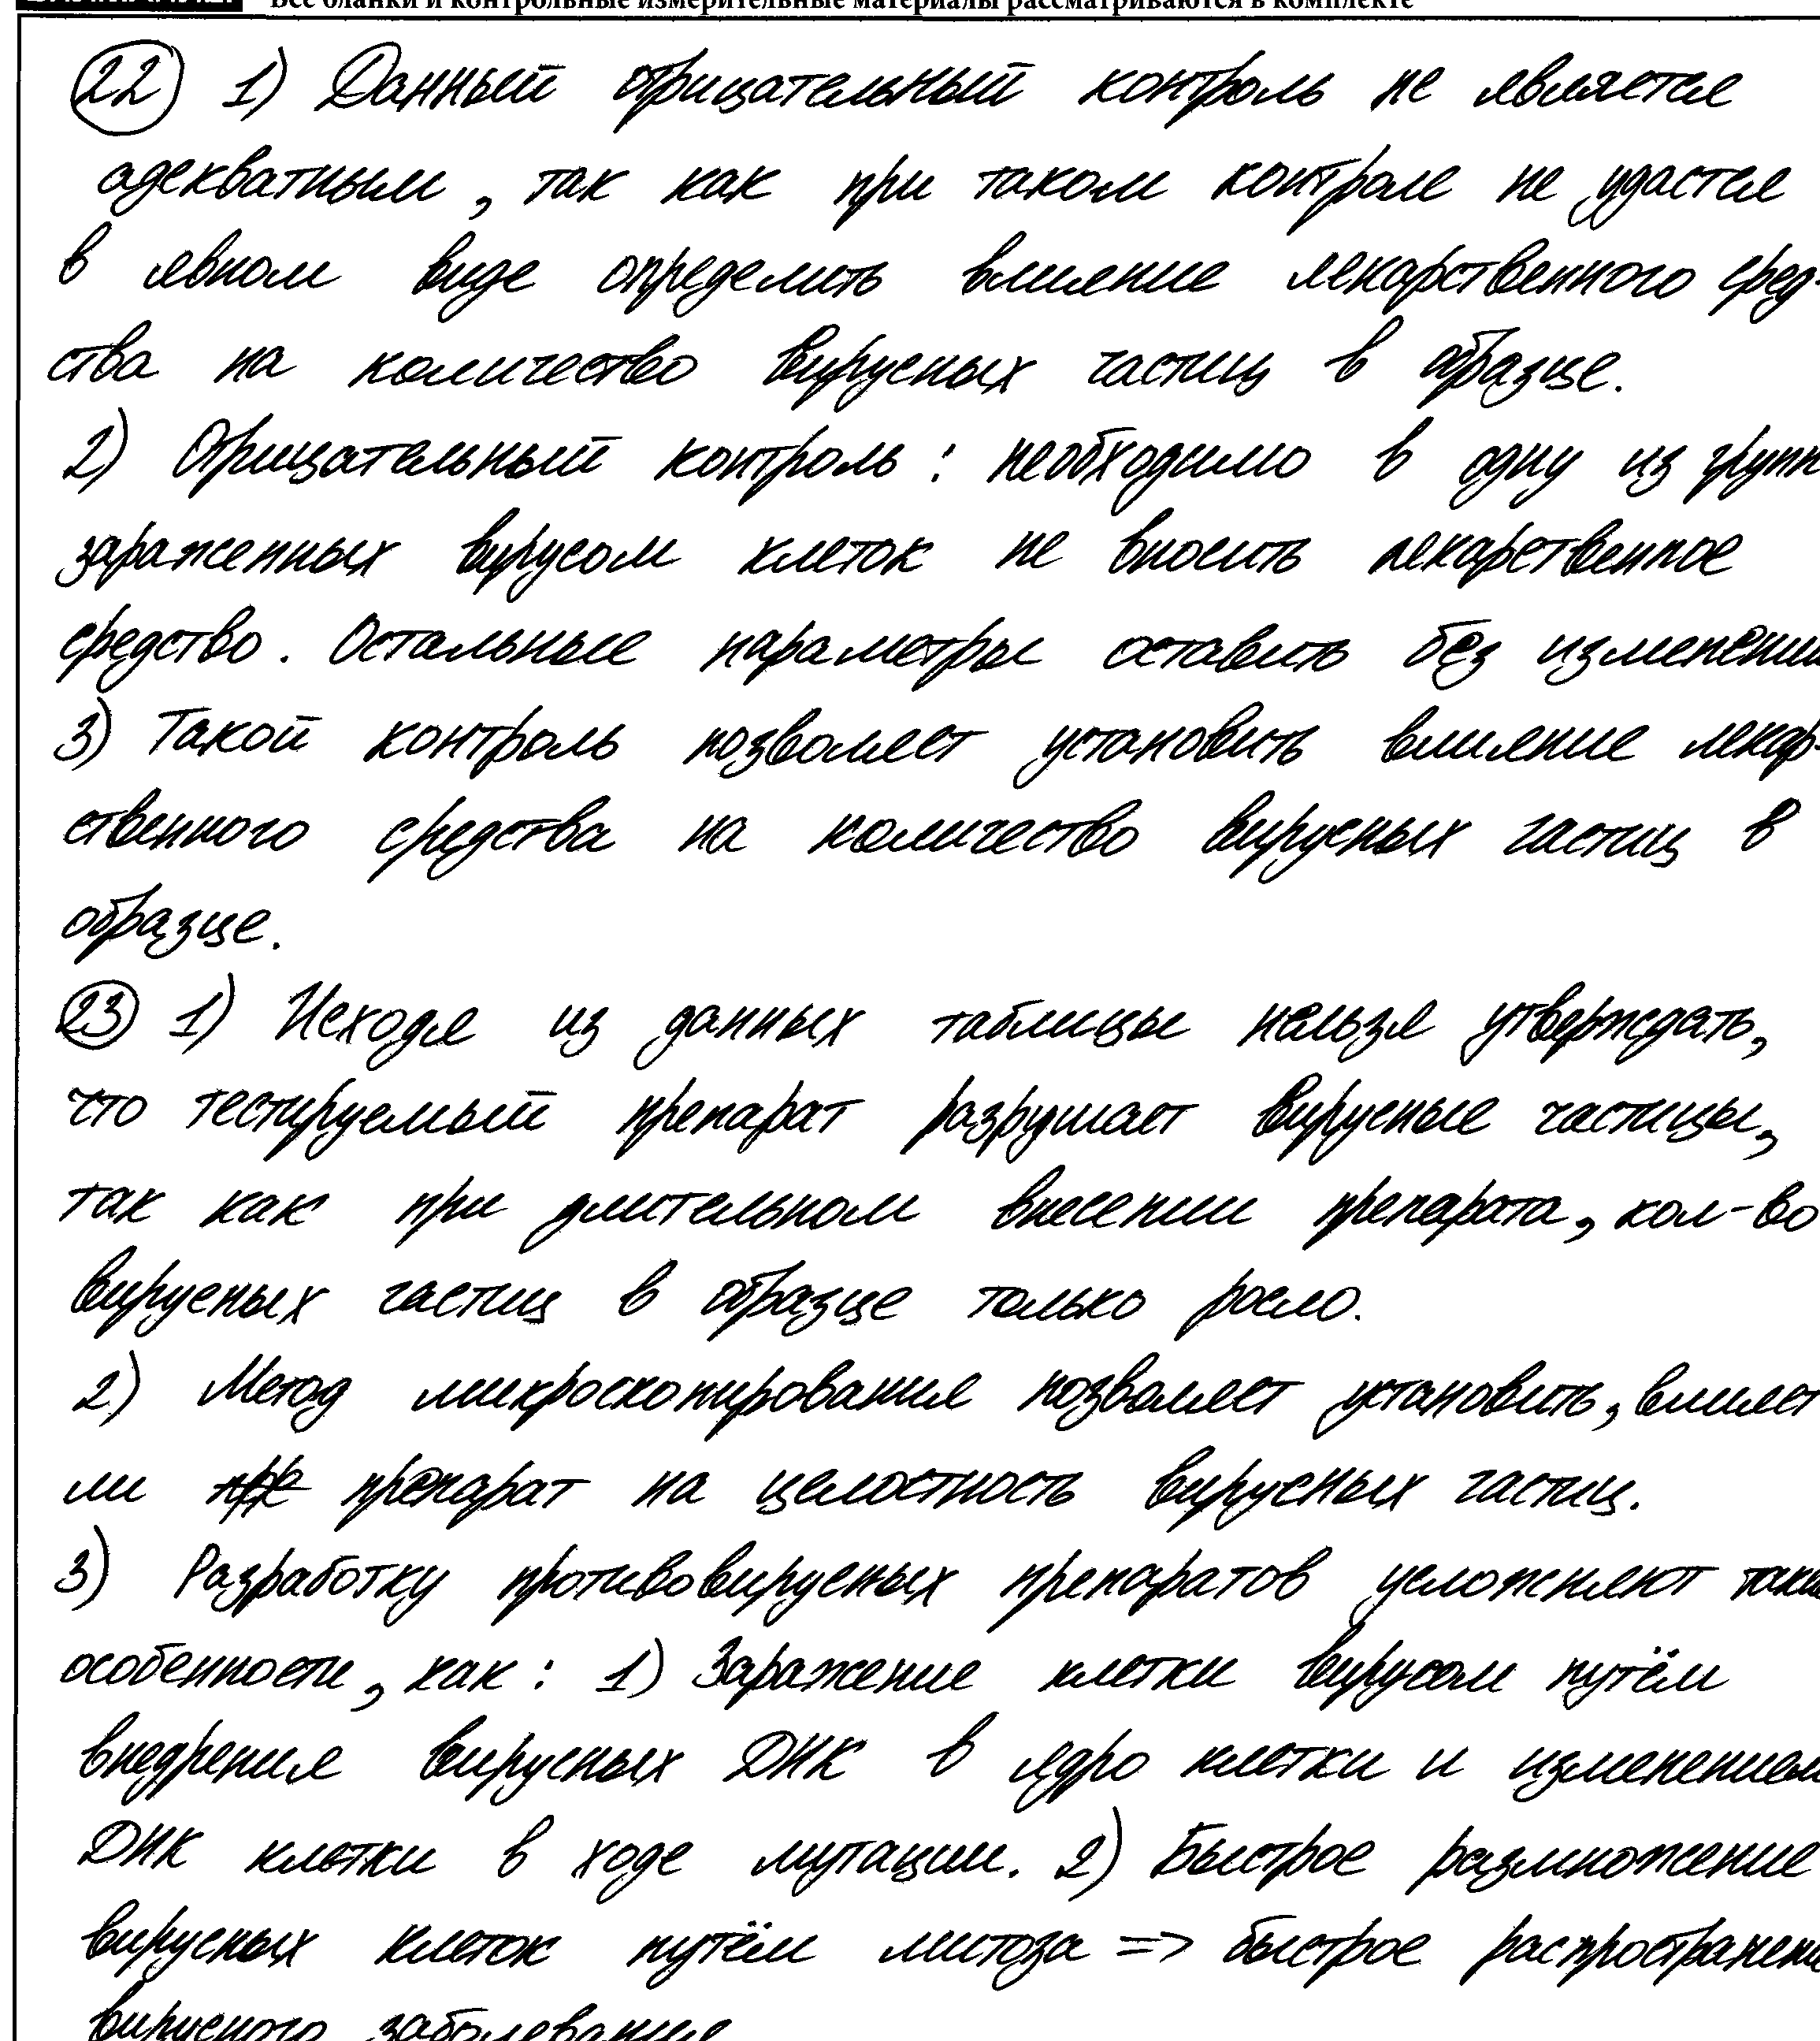 Все бланки и контрольные измерительные материалы рассматриваются в комплекте
22 1) Данный отрицательный контроль не является
адекватным, так как при таком контроле не удастся
в явном виде определить влияние лекарственного сред-
ства на количество вирусных частиц в образце.
2) Отрицательный контроль: необходимо в одну из групп
зараженных вирусом клеток не вносить лекарственное
средство. Остальные параметры оставить без изменений
3) Такой контроль позволяет установить влияние лекар-
ственного средства на количество вирусных частиц в
образце.
23 1) Исходя из данных таблицы нельзя утверждать,
что тестируемый препарат разрушает вирусные частицы,
так как при длительном внесении препарата, кол-во
вирусных частиц в образце только росло.
2) Метод микроскопирования позволяет установить, влияет
ли препарат на целостность вирусных частиц.
3) Разработку противовирусных препаратов усложняют такие
особенности, как: 1) Заражение клетки вирусом путём
внедрения вирусных ДНК в ядро клетки и изменением
ДНК клетки в ходе мутации. 2) Быстрое размножение
вирусных клеток путём митоза => быстрое распространение
вирусного заболевания